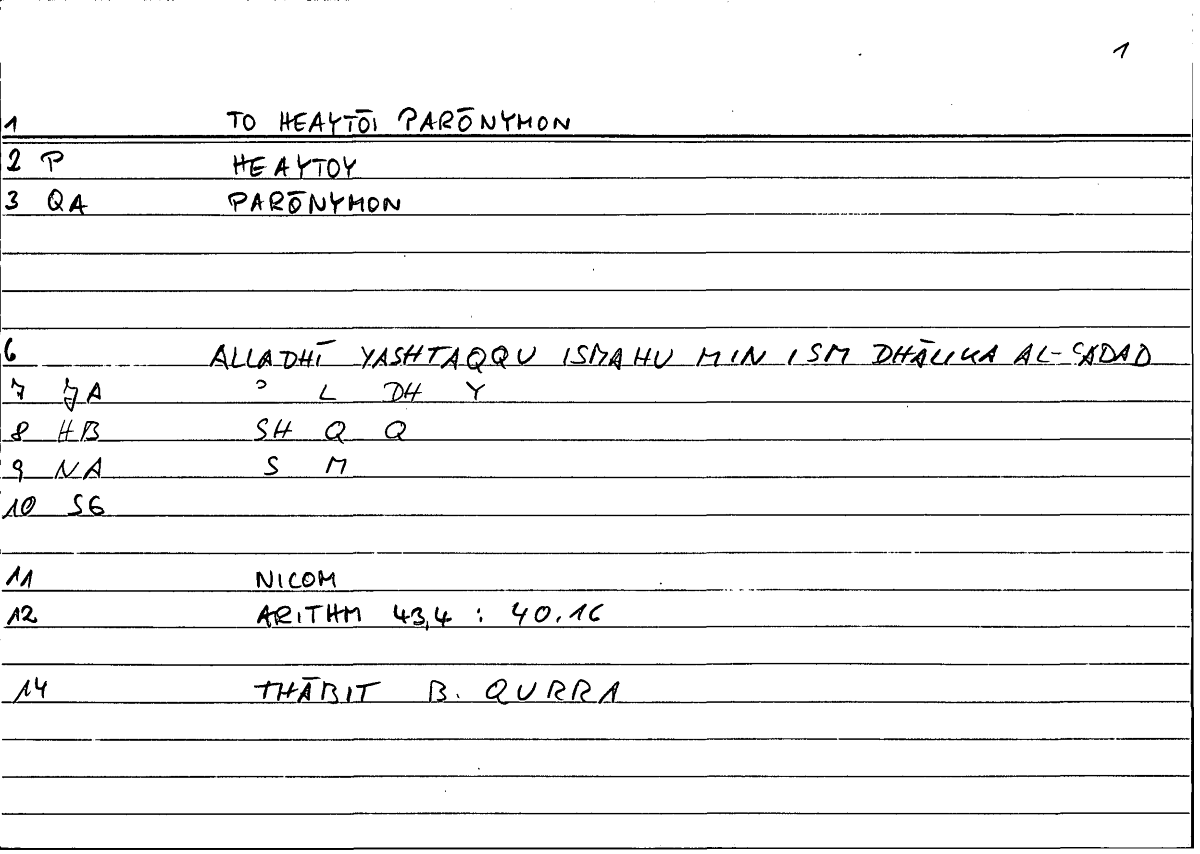 1
1 TO HEAYTŌI PARŌNYMON
2 P HEAYTOY
3 QA PARŌNYMON
6 ALLADHĪ YASHTAQQU ISMAHU MIN ISM DHĀLIKA AL-ʿADAD
7 JA ʾ L DH Y
8 HB SH Q Q
9 NA S M
10 SG
11 NICOM
12 ARITHM 43,4 : 40.16
14 THĀBIT B. QURRA